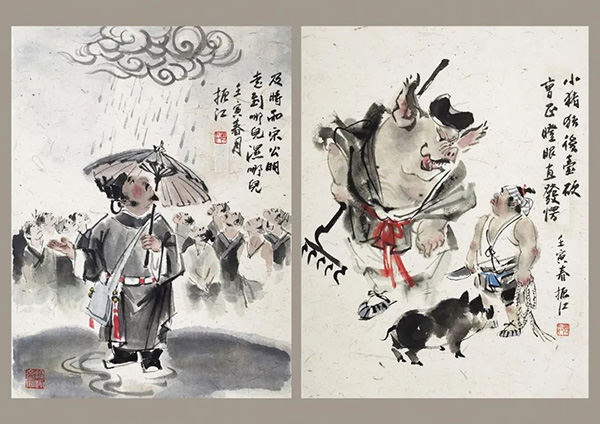 及時雨宋公明
走到哪兒濕哪兒
壬寅春月
振江
小猪猪後臺硬
曹正瞪眼直發愣
壬寅春振江